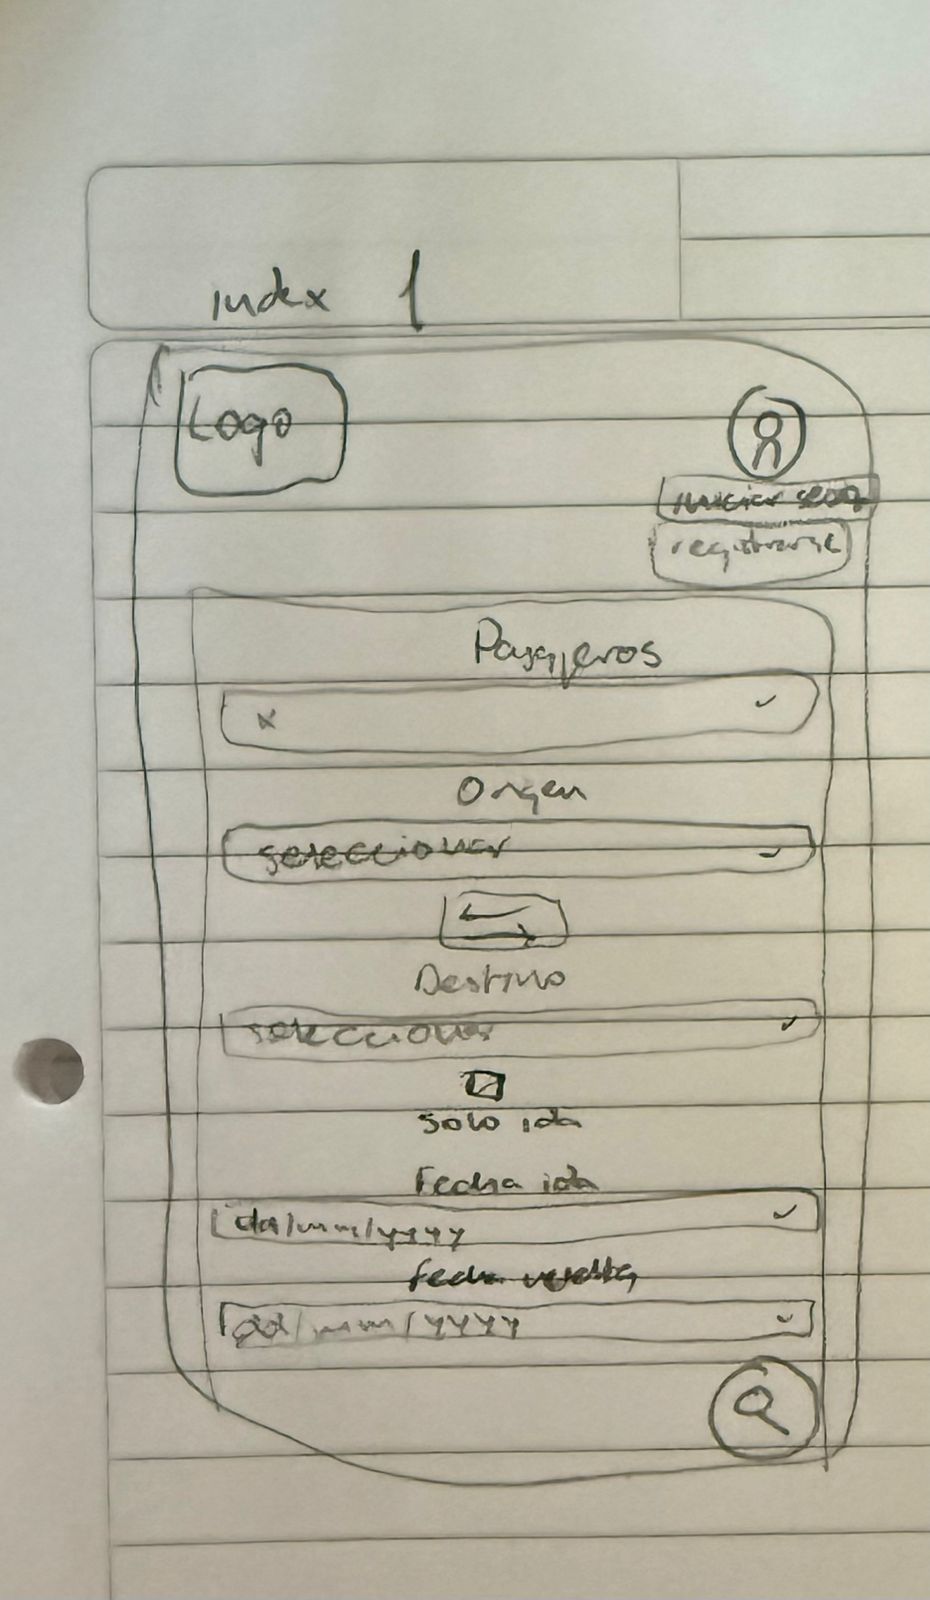 index 1
Logo
iniciar sesión
registrarse
Pasajeros
x
Origen
seleccionar
Destino
seleccionar
solo ida
Fecha ida
dd/mm/yyyy
fecha vuelta
dd/mm/yyyy